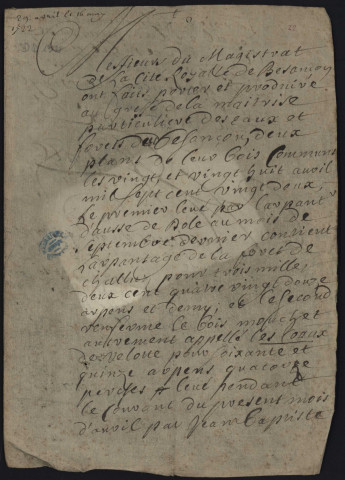 1722
Messieurs du Magistrat
De la Cité Royalle de Besançon
ont fait porter et produire
au greffe de la maitrise
particuliere des eaux et
forets de Besançon, deux
plans de leur bois communs
les vingt et vingt huit avril
mil sept cent vingt deux,
Le premier levé par l'arpanteur
d'ausse de Dole au mois de
septembre dernier contient
l'arpantage de la forest de
chailluz pour trois mille,
deux cent quatre vingt douze
arpens et demy, et le second
renferme le bois mouchet
autrement appellé les
pour soixante et
quinze arpens quatorze
perches levé pendant
le courant du present mois
d'avril par Jean Baptiste